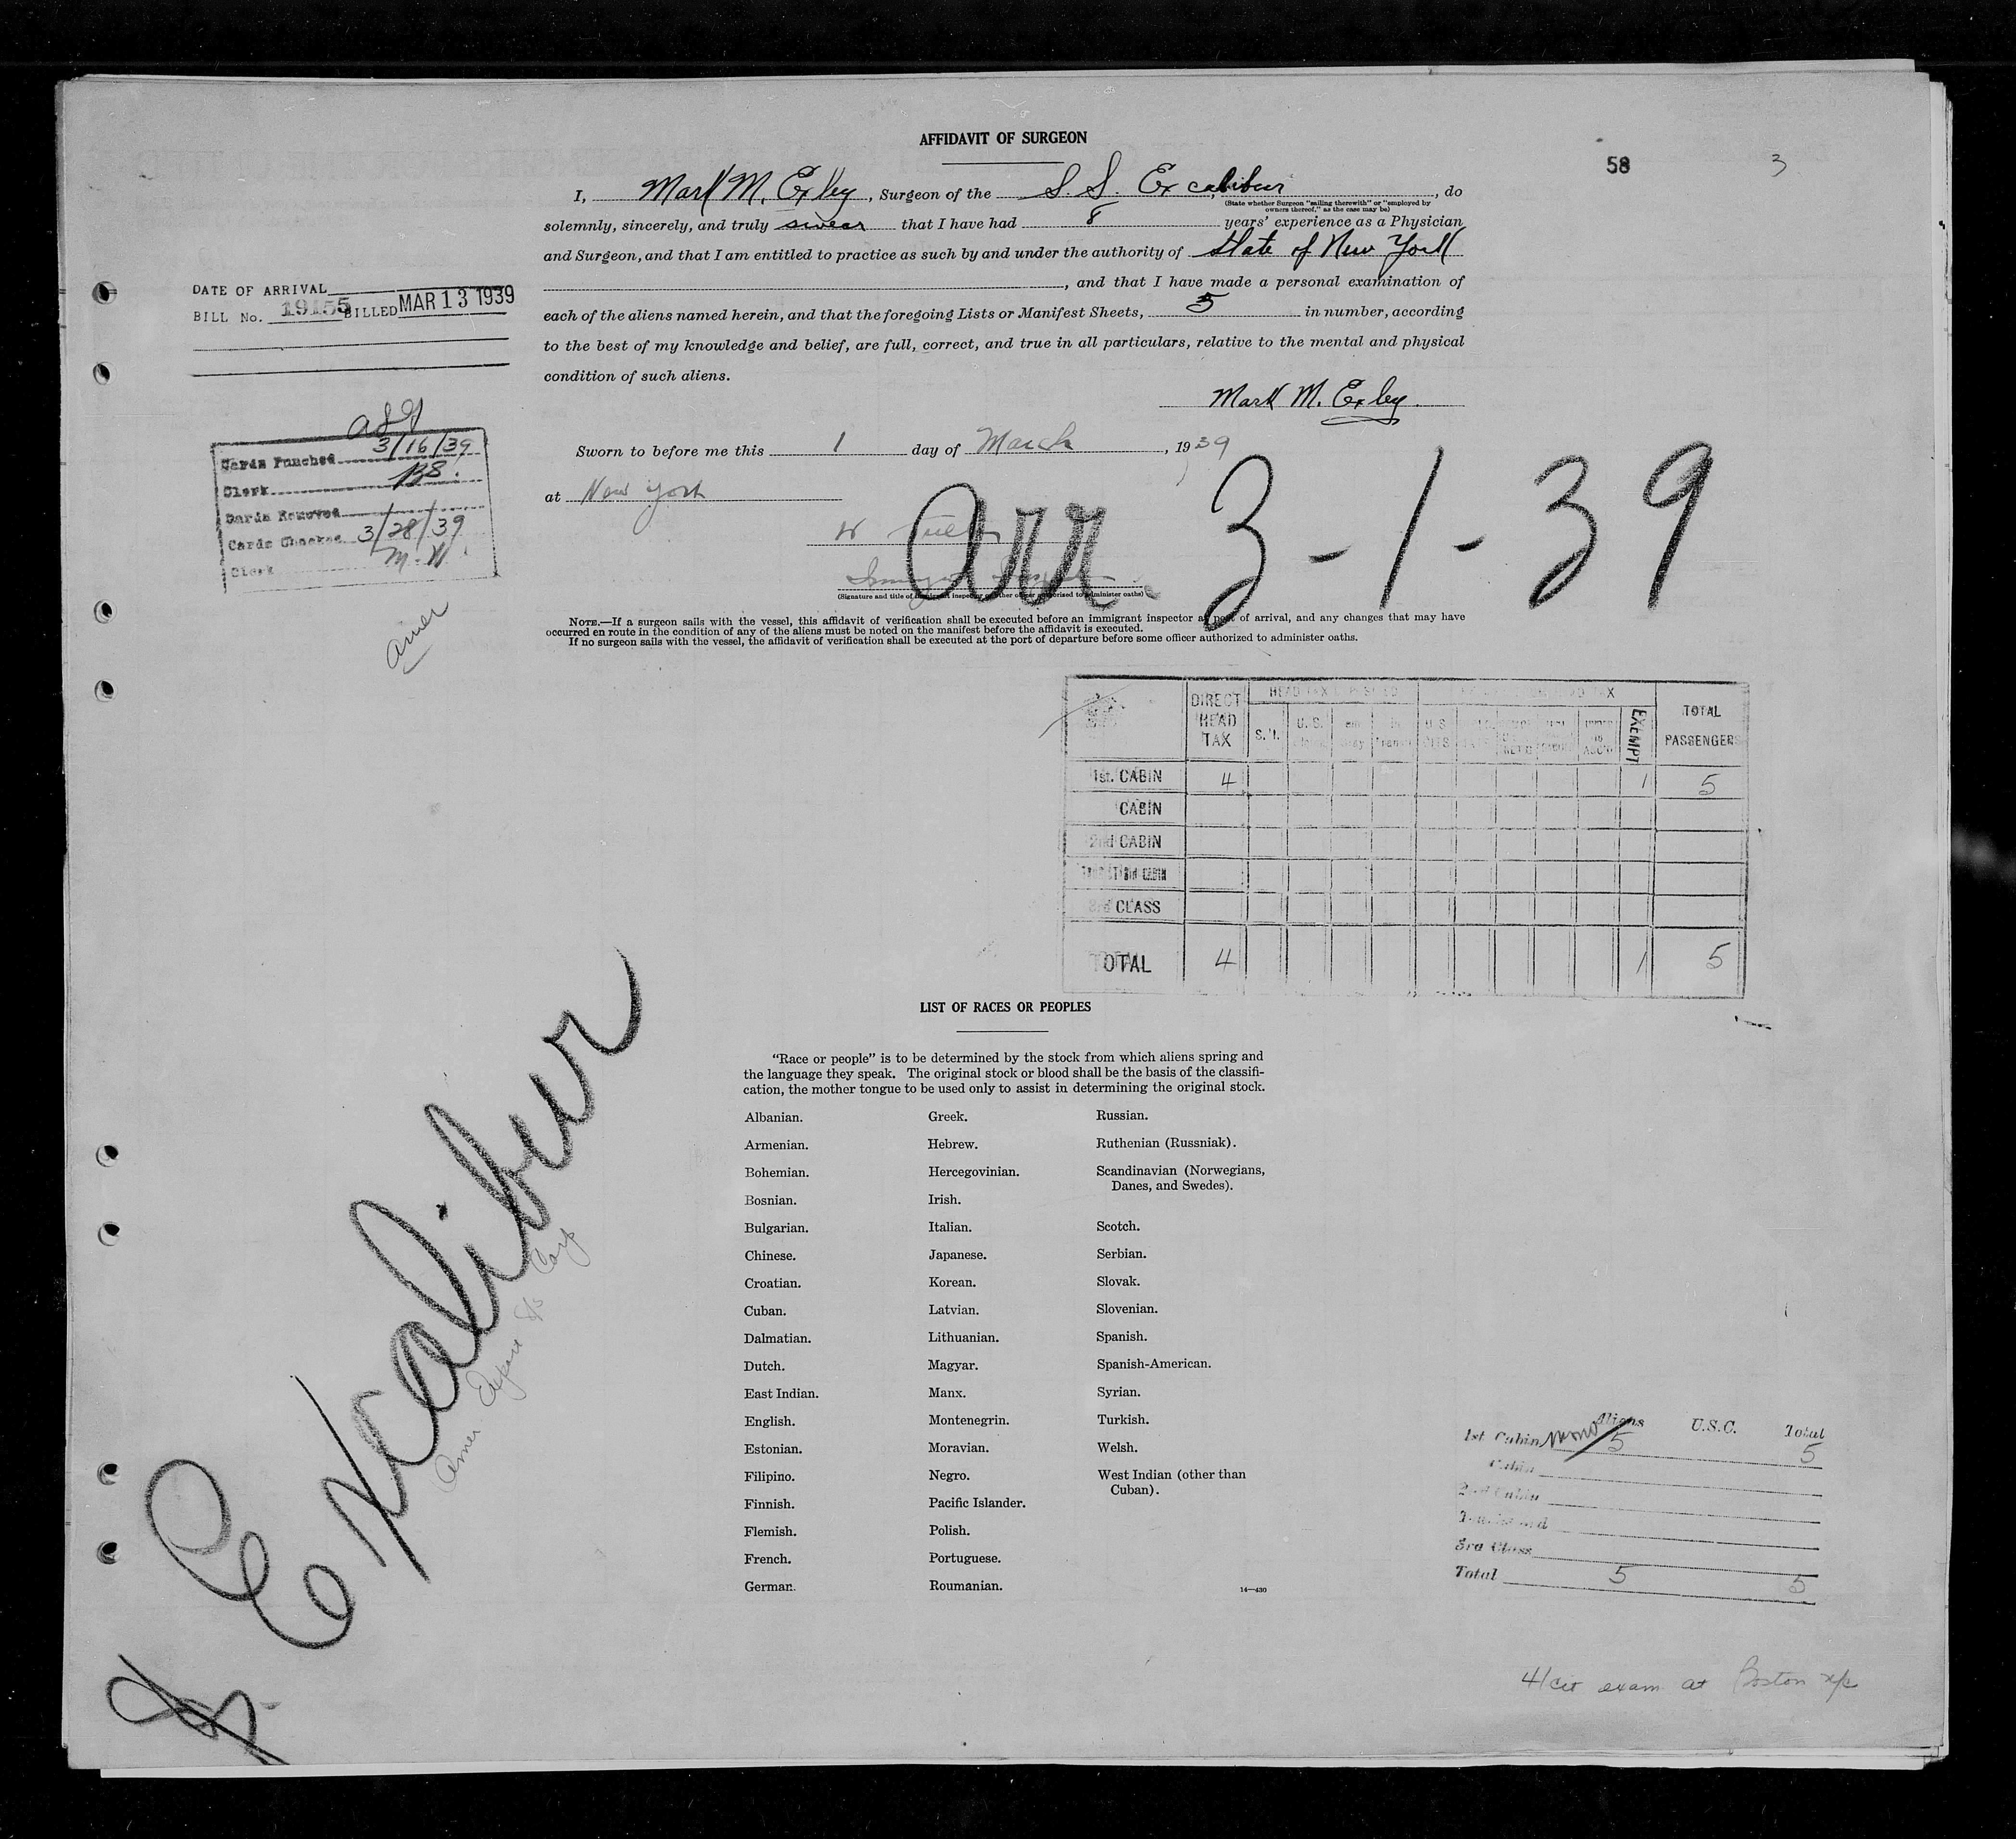 AFFIDAVIT OF SURGEON
58
3
I, Mark M. Exley, Surgeon of the S. S. Excalibur, do
(State whether Surgeon "sailing therewith" or "employed by
owners thereof," as the case may be)
solemnly, sincerely, and truly swear that I have had 8 years' experience as a Physician
and Surgeon, and that I am entitled to practice as such by and under the authority of State of New York
, and that I have made a personal examination of
each of the aliens named herein, and that the foregoing Lists or Manifest Sheets, 5 in number, according
to the best of my knowledge and belief, are full, correct, and true in all particulars, relative to the mental and physical
condition of such aliens.
Mark M. Exley
Sworn to before me this 1 day of March, 1939
at New York
Arr. 3-1-39
(Signature and title of immigrant inspector or other officer authorized to administer oaths)
NOTE.—If a surgeon sails with the vessel, this affidavit of verification shall be executed before an immigrant inspector at port of arrival, and any changes that may have
occurred en route in the condition of any of the aliens must be noted on the manifest before the affidavit is executed.
If no surgeon sails with the vessel, the affidavit of verification shall be executed at the port of departure before some officer authorized to administer oaths.
DATE OF ARRIVAL
BILL No. 19155 BILLED MAR 13 1939
Cards Punched 3/16/39
Clerk
Cards Removed
Cards Checked 3/28/39
Clerk M.W.
Amer
DIRECT HEAD TAX
S.I.
U.S.
EXEMPT
TOTAL PASSENGERS
1st. CABIN 4 1 5
CABIN
2nd CABIN
3rd CLASS
TOTAL 4 1 5
LIST OF RACES OR PEOPLES
"Race or people" is to be determined by the stock from which aliens spring and
the language they speak. The original stock or blood shall be the basis of the classifi-
cation, the mother tongue to be used only to assist in determining the original stock.
Albanian.
Armenian.
Bohemian.
Bosnian.
Bulgarian.
Chinese.
Croatian.
Cuban.
Dalmatian.
Dutch.
East Indian.
English.
Estonian.
Filipino.
Finnish.
Flemish.
French.
German.
Greek.
Hebrew.
Hercegovinian.
Irish.
Italian.
Japanese.
Korean.
Latvian.
Lithuanian.
Magyar.
Manx.
Montenegrin.
Moravian.
Negro.
Pacific Islander.
Polish.
Portuguese.
Roumanian.
Russian.
Ruthenian (Russniak).
Scandinavian (Norwegians,
Danes, and Swedes).
Scotch.
Serbian.
Slovak.
Slovenian.
Spanish.
Spanish-American.
Syrian.
Turkish.
Welsh.
West Indian (other than
Cuban).
14—430
SS Excalibur
Amer Export S/S Corp
Aliens U.S.C. Total
1st Cabin 5 5
Cabin
2nd Cabin
3rd Class
Total 5 5
exam at Boston